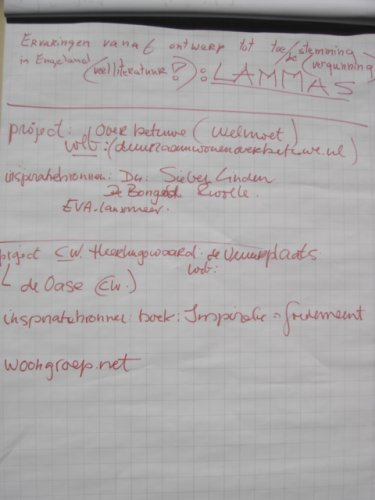 Ervaringen vanaf ontwerp tot toe/stemming
in Engeland (veel literatuur?): LAMMAS (vergunning)
project: Overbetuwe (Welmoet)
web: (duurzaamwonenoverbetuwe.nl)
inspiratiebronnen: Du: Sieben Linden
Zwolle.
EVA-Lanxmeer.
project CW. Heerhugowaard: de
web:
de Oase (CW.)
inspiratiebronnen: boek: Inspiratie =
woongroep.net